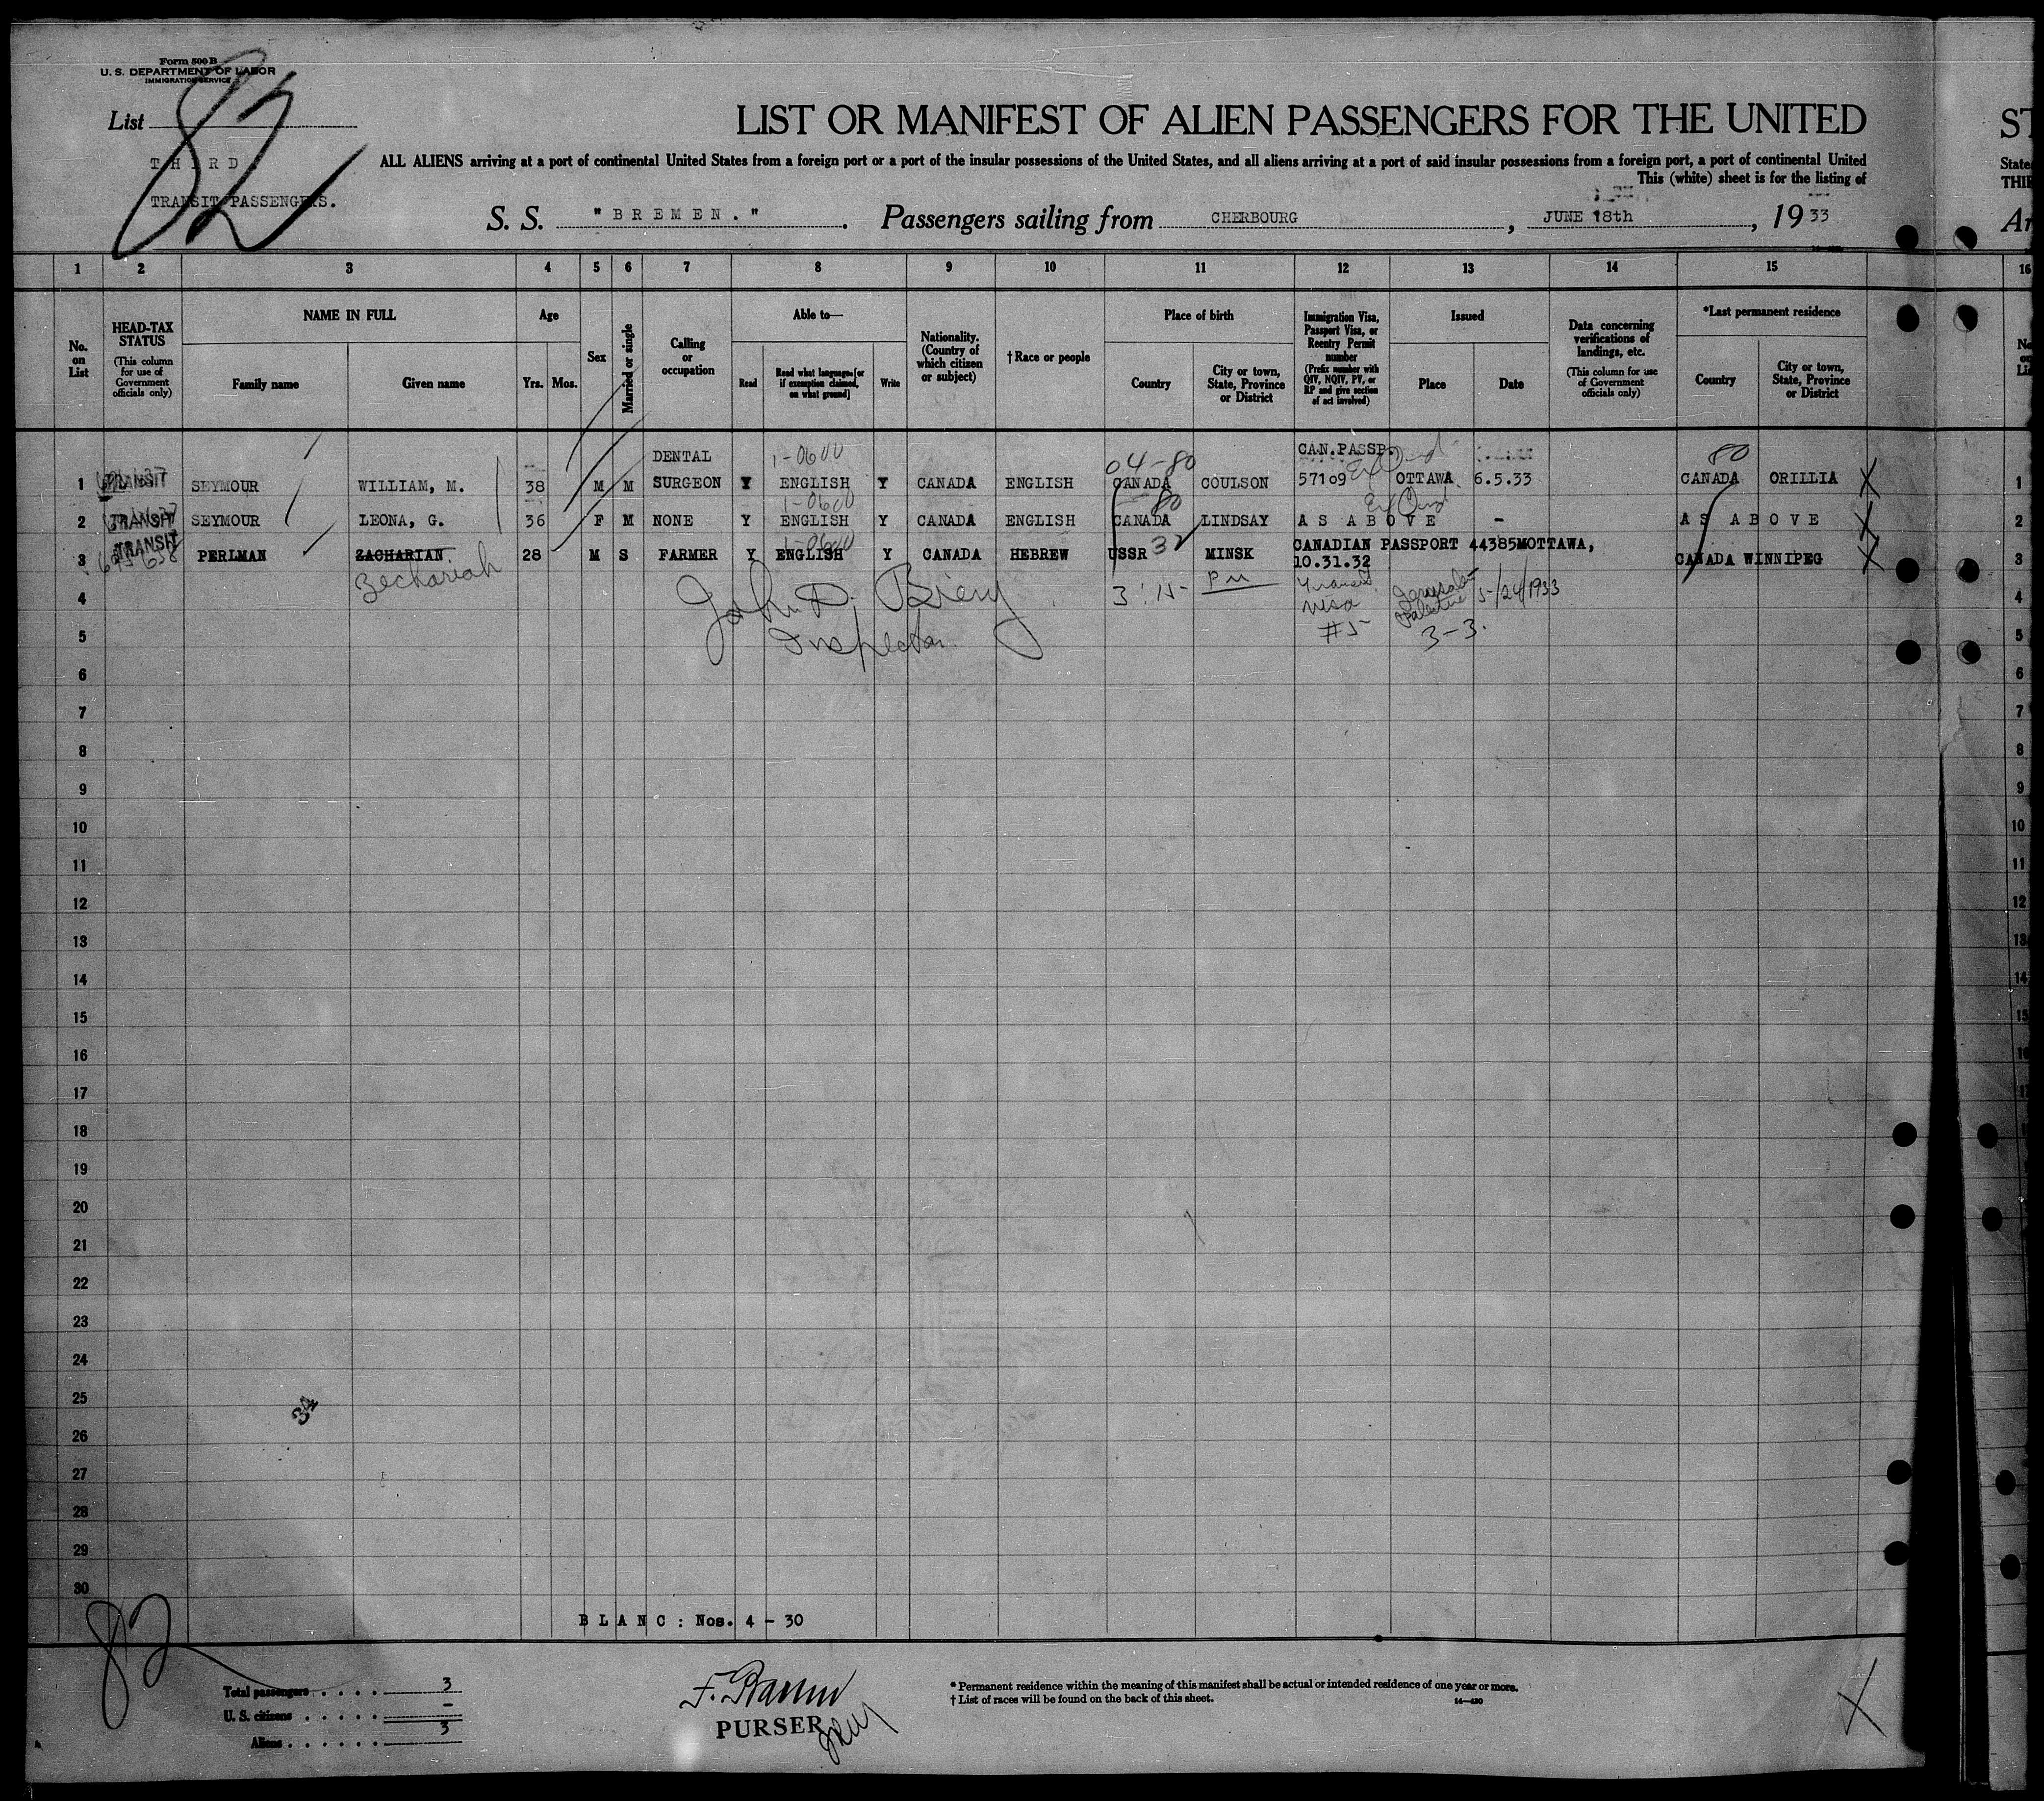 Form 500 B
U. S. DEPARTMENT OF LABOR
IMMIGRATION SERVICE
List 82
THIRD
TRANSIT PASSENGERS.
LIST OR MANIFEST OF ALIEN PASSENGERS FOR THE UNITED
ST
ALL ALIENS arriving at a port of continental United States from a foreign port or a port of the insular possessions of the United States, and all aliens arriving at a port of said insular possessions from a foreign port, a port of continental United
State
This (white) sheet is for the listing of
THI
S. S. "BREMEN." Passengers sailing from CHERBOURG, JUNE 18th, 1933
1 2 3 4 5 6 7 8 9 10 11 12 13 14 15 16
No. on List
HEAD-TAX STATUS
(This column for use of Government officials only)
NAME IN FULL
Family name
Given name
Age
Yrs. Mos.
Sex
Married or single
Calling or occupation
Able to—
Read
Read what language [or if exemption claimed, on what ground]
Write
Nationality. (Country of which citizen or subject)
† Race or people
Place of birth
Country
City or town, State, Province or District
Immigration Visa, Passport Visa, or Reentry Permit number
(Prefix number with QIV, NQIV, PV, or RP and give section of act involved)
Issued
Place
Date
Data concerning verifications of landings, etc.
(This column for use of Government officials only)
*Last permanent residence
Country
City or town, State, Province or District
DENTAL 1-0600 04-80 CAN.PASSP. 80
1 TRANSIT SEYMOUR WILLIAM, M. 38 M M SURGEON Y ENGLISH Y CANADA ENGLISH CANADA COULSON 57109 OTTAWA 6.5.33 CANADA ORILLIA X 1
1-0600 80
2 TRANSIT SEYMOUR LEONA, G. 36 F M NONE Y ENGLISH Y CANADA ENGLISH CANADA LINDSAY AS ABOVE - AS ABOVE X 2
1-0600
3 TRANSIT PERLMAN ZACHARIAN 28 M S FARMER Y ENGLISH Y CANADA HEBREW USSR 32 MINSK CANADIAN PASSPORT 44385MOTTAWA, 10.31.32 CANADA WINNIPEG X 3
Zechariah
4 3:15 PM Transit visa #5 Jerusalem Palestine 5/24/1933 4
John D. Biery
Inspector
3-3.
5 5
6 6
7 7
8 8
9 9
10 10
11 11
12 12
13 13
14 14
15 15
16 16
17 17
18
19
20
21
22
23
24
25
34
26
27
28
29
30
BLANC: Nos. 4 - 30
82
Total passengers . . . . . 3
U. S. citizens . . . . . –
Aliens . . . . . . 3
PURSER
* Permanent residence within the meaning of this manifest shall be actual or intended residence of one year or more.
† List of races will be found on the back of this sheet.
14—430
X